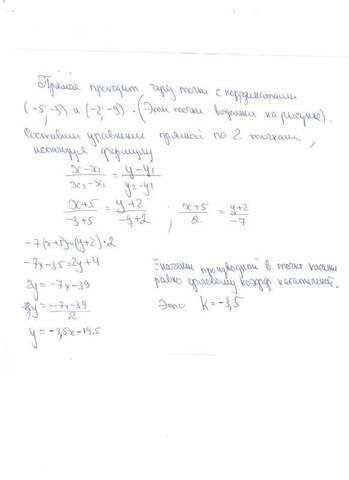 Прямая проходит через точки с координатами
(-5;-3) и (-2;-9). (Эти точки видны на рисунке).
Составим уравнение прямой по 2 точкам,
используя формулу
x-x₁/x₂-x₁ = y-y₁/y₂-y₁
x+5/-3+5 = y+2/-9+2 ; x+5/2 = y+2/-7
-7(x+5)=(y+2)·2
-7x-35=2y+4
2y=-7x-39
y=-7x-39/2
y=-3,5x-19.5
Значение производной в точке касания
равно угловому коэфф касательной.
Это K=-3,5